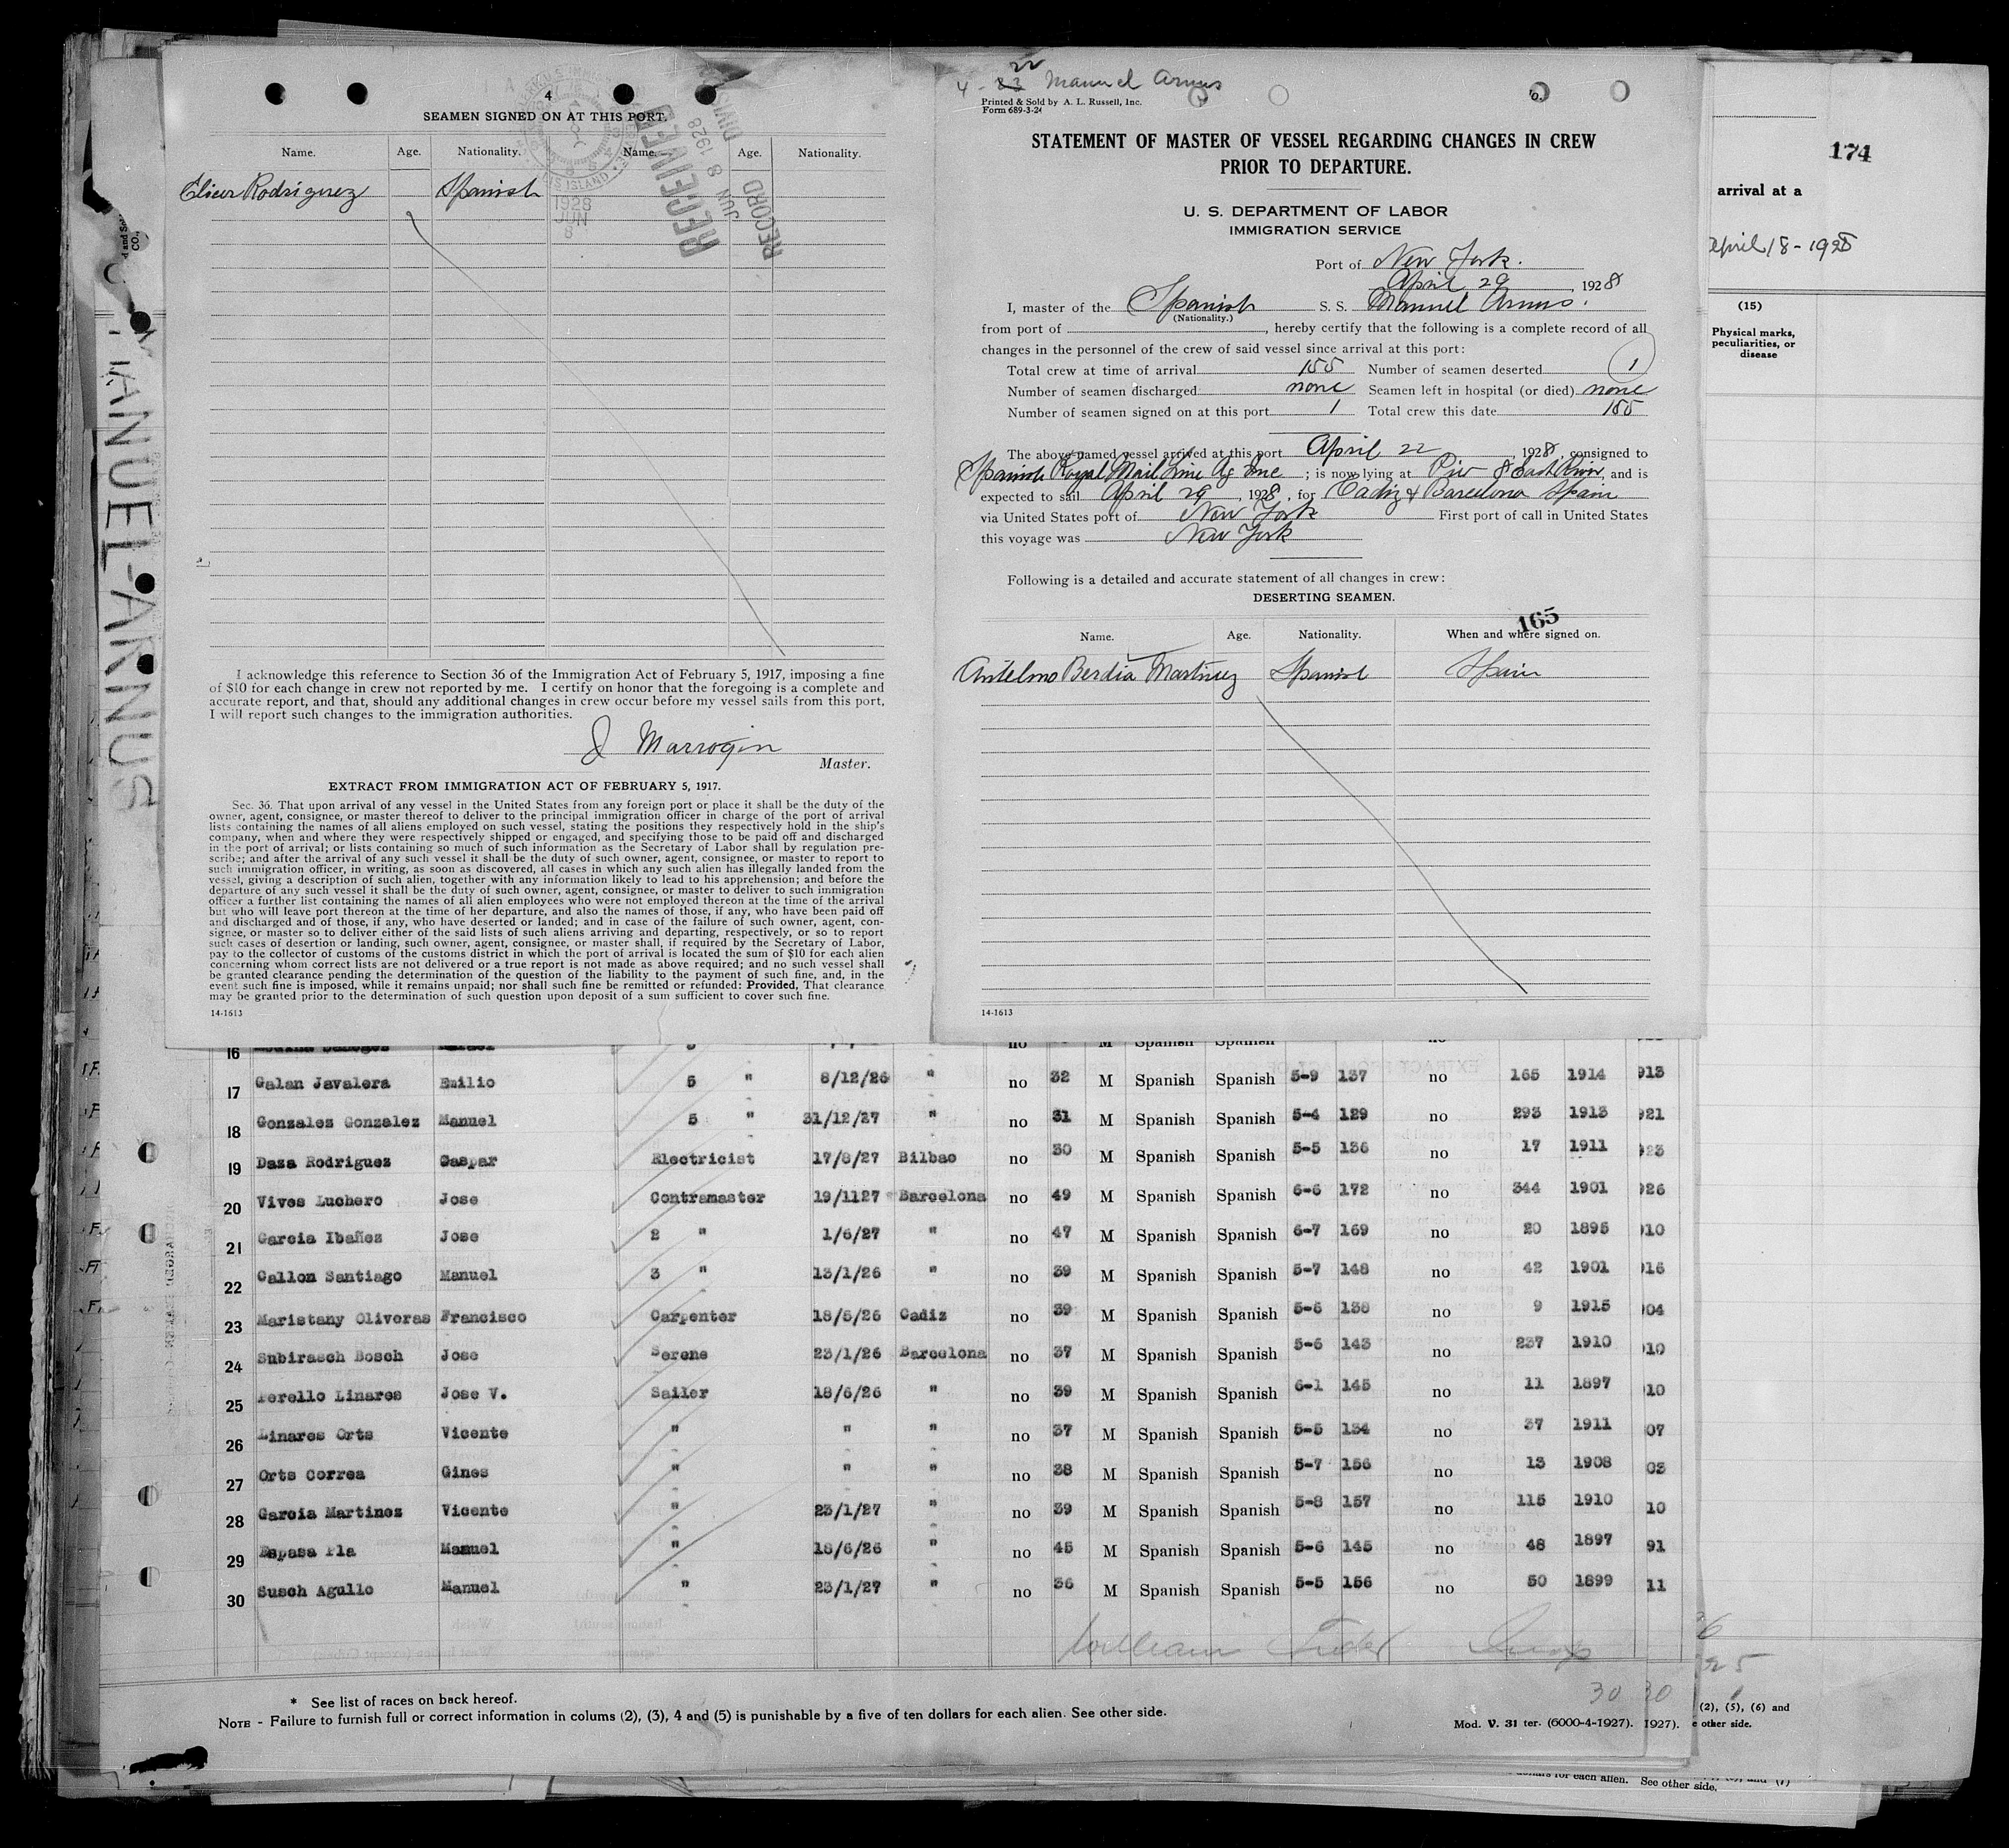 4
SEAMEN SIGNED ON AT THIS PORT.
Name. Age. Nationality. Name. Age. Nationality.
Elicer Rodriguez Spanish
1928
JUN
8
RECEIVED
JUN 8 1928
RECORD DIVIS
I acknowledge this reference to Section 36 of the Immigration Act of February 5, 1917, imposing a fine
of $10 for each change in crew not reported by me. I certify on honor that the foregoing is a complete and
accurate report, and that, should any additional changes in crew occur before my vessel sails from this port,
I will report such changes to the immigration authorities.
J Marroqin
Master.
EXTRACT FROM IMMIGRATION ACT OF FEBRUARY 5, 1917.
Sec. 36. That upon arrival of any vessel in the United States from any foreign port or place it shall be the duty of the
owner, agent, consignee, or master thereof to deliver to the principal immigration officer in charge of the port of arrival
lists containing the names of all aliens employed on such vessel, stating the positions they respectively hold in the ship's
company, when and where they were respectively shipped or engaged, and specifying those to be paid off and discharged
in the port of arrival; or lists containing so much of such information as the Secretary of Labor shall by regulation pre-
scribe; and after the arrival of any such vessel it shall be the duty of such owner, agent, consignee, or master to report to
such immigration officer, in writing, as soon as discovered, all cases in which any such alien has illegally landed from the
vessel, giving a description of such alien, together with any information likely to lead to his apprehension; and before the
departure of any such vessel it shall be the duty of such owner, agent, consignee, or master to deliver to such immigration
officer a further list containing the names of all alien employees who were not employed thereon at the time of the arrival
but who will leave port thereon at the time of her departure, and also the names of those, if any, who have been paid off
and discharged and of those, if any, who have deserted or landed; and in case of the failure of such owner, agent, con-
signee, or master so to deliver either of the said lists of such aliens arriving and departing, respectively, or so to report
such cases of desertion or landing, such owner, agent, consignee, or master shall, if required by the Secretary of Labor,
pay to the collector of customs of the customs district in which the port of arrival is located the sum of $10 for each alien
concerning whom correct lists are not delivered or a true report is not made as above required; and no such vessel shall
be granted clearance pending the determination of the question of the liability to the payment of such fine, and, in the
event such fine is imposed, while it remains unpaid; nor shall such fine be remitted or refunded: Provided, That clearance
may be granted prior to the determination of such question upon deposit of a sum sufficient to cover such fine.
14-1613
MANUEL-ARNUS
22
4 - 23 Manuel Arnus
Printed & Sold by A. L. Russell, Inc.
Form 689-3-24
STATEMENT OF MASTER OF VESSEL REGARDING CHANGES IN CREW
PRIOR TO DEPARTURE.
U. S. DEPARTMENT OF LABOR
IMMIGRATION SERVICE
Port of New York.
April 29, 1928
I, master of the Spanish S. S. Manuel Arnus.
(Nationality.)
from port of , hereby certify that the following is a complete record of all
changes in the personnel of the crew of said vessel since arrival at this port:
Total crew at time of arrival 155 Number of seamen deserted 1
Number of seamen discharged none Seamen left in hospital (or died) none
Number of seamen signed on at this port 1 Total crew this date 155
The above-named vessel arrived at this port April 22, 1928, consigned to
Spanish Royal Mail Line Ag Inc ; is now lying at Pier 8 East River, and is
expected to sail April 29, 1928, for Cadiz & Barcelona Spain
via United States port of New York First port of call in United States
this voyage was New York
Following is a detailed and accurate statement of all changes in crew:
DESERTING SEAMEN.
165
Name. Age. Nationality. When and where signed on.
Antelmo Berdia Martinez Spanish Spain
14-1613
174
arrival at a
April 18-1928
(15)
Physical marks,
peculiarities, or
disease
16 no M Spanish Spanish no
17 Galan Javalera Emilio 5 " 8/12/26 " no 32 M Spanish Spanish 5-9 137 no 165 1914 913
18 Gonzales Gonzalez Manuel 5 " 31/12/27 " no 31 M Spanish Spanish 5-4 129 no 293 1913 921
19 Daza Rodriguez Gaspar Electricist 17/8/27 Bilbao no 30 M Spanish Spanish 5-5 136 no 17 1911 923
20 Vives Luchero Jose Contramaster 19/1127 Barcelona no 49 M Spanish Spanish 6-6 172 no 344 1901 926
21 Garcia Ibañez Jose 2 " 1/6/27 " no 47 M Spanish Spanish 6-7 169 no 20 1895 910
22 Gallon Santiago Manuel 3 " 13/1/26 " no 39 M Spanish Spanish 5-7 148 no 42 1901 916
23 Maristany Oliveras Francisco Carpenter 18/5/26 Cadiz no 39 M Spanish Spanish 5-6 138 no 9 1915 904
24 Subirasch Bosch Jose Serene 23/1/26 Barcelona no 37 M Spanish Spanish 5-6 143 no 237 1910 910
25 Perello Linares Jose V. Sailer 18/6/26 " no 39 M Spanish Spanish 6-1 145 no 11 1897 910
26 Linares Orts Vicente " " " no 37 M Spanish Spanish 5-5 134 no 37 1911 07
27 Orts Correa Gines " " " no 38 M Spanish Spanish 5-7 156 no 13 1908 03
28 Garcia Martinez Vicente " 23/1/27 " no 39 M Spanish Spanish 5-8 157 no 115 1910 10
29 Espasa Pla Manuel " 18/6/26 " no 45 M Spanish Spanish 5-6 145 no 48 1897 91
30 Susch Agullo Manuel " 23/1/27 " no 36 M Spanish Spanish 5-5 156 no 50 1899 11
William
30 30
* See list of races on back hereof.
NOTE - Failure to furnish full or correct information in colums (2), (3), 4 and (5) is punishable by a five of ten dollars for each alien. See other side.
Mod. V. 31 ter. (6000-4-1927). 1927).
(2), (5), (6) and
e other side.
for each alien. See other side.